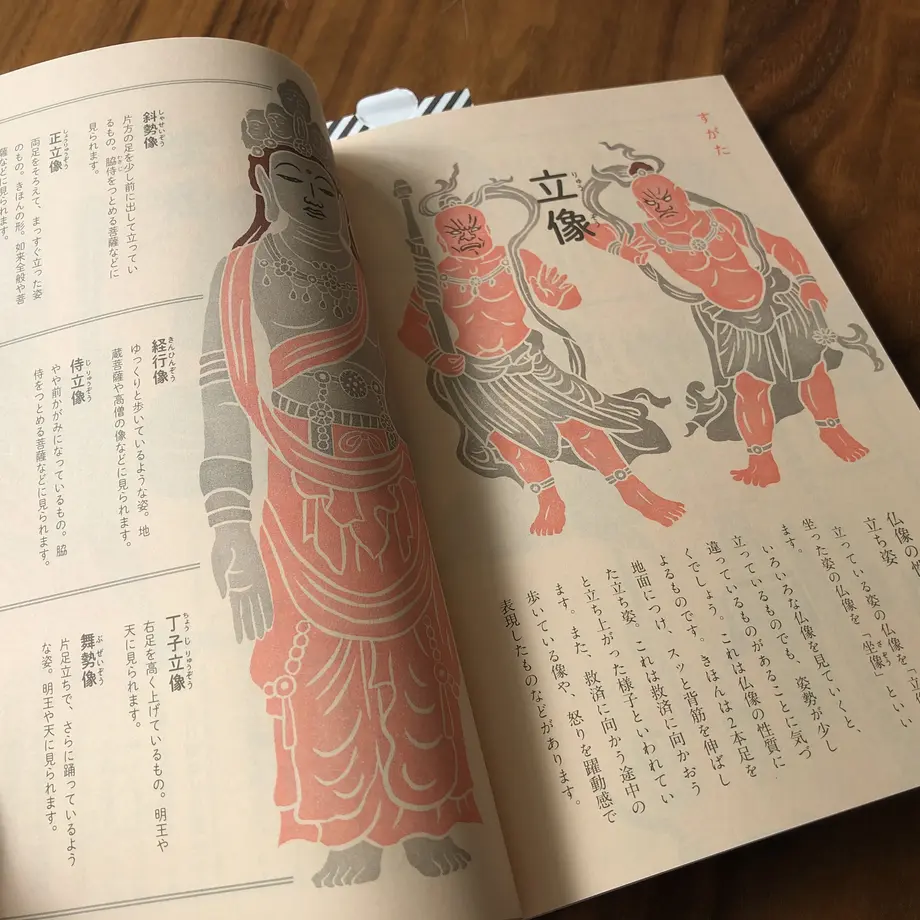 すがた
立像
りゅうぞう
仏像の
立ち姿
立っている姿の仏像を「立
坐った姿の仏像を「坐像」といい
ざぞう
ます。
いろいろな仏像を見ていくと、
立っているものでも、姿勢が少し
違っているものがあることに気づ
くでしょう。これは仏像の性質に
よるものです。きほんは2本足を
地面につけ、スッと背筋を伸ばし
た立ち姿。これは救済に向かおう
と立ち上がった様子といわれてい
ます。また、救済に向かう途中の
歩いている像や、怒りを躍動感で
表現したものなどがあります。
斜勢像
しゃせいぞう
片方の足を少し前に出して立ってい
るもの。脇侍をつとめる菩薩などに
わきじ
見られます。
正立像
しょうりゅうぞう
両足をそろえて、まっすぐ立った姿
のもの。きほんの形。如来全般や菩
薩などに見られます。
経行像
きんひんぞう
ゆっくりと歩いているような姿。地
蔵菩薩や高僧の像などに見られます。
侍立像
じりゅうぞう
やや前かがみになっているもの。脇
侍をつとめる菩薩などに見られます。
丁子立像
ちょうじりゅうぞう
右足を高く上げているもの。明王や
天に見られます。
舞勢像
ぶせいぞう
片足立ちで、さらに踊っているよう
な姿。明王や天に見られます。